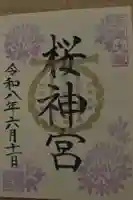 桜神宮
令和八年六月十一日